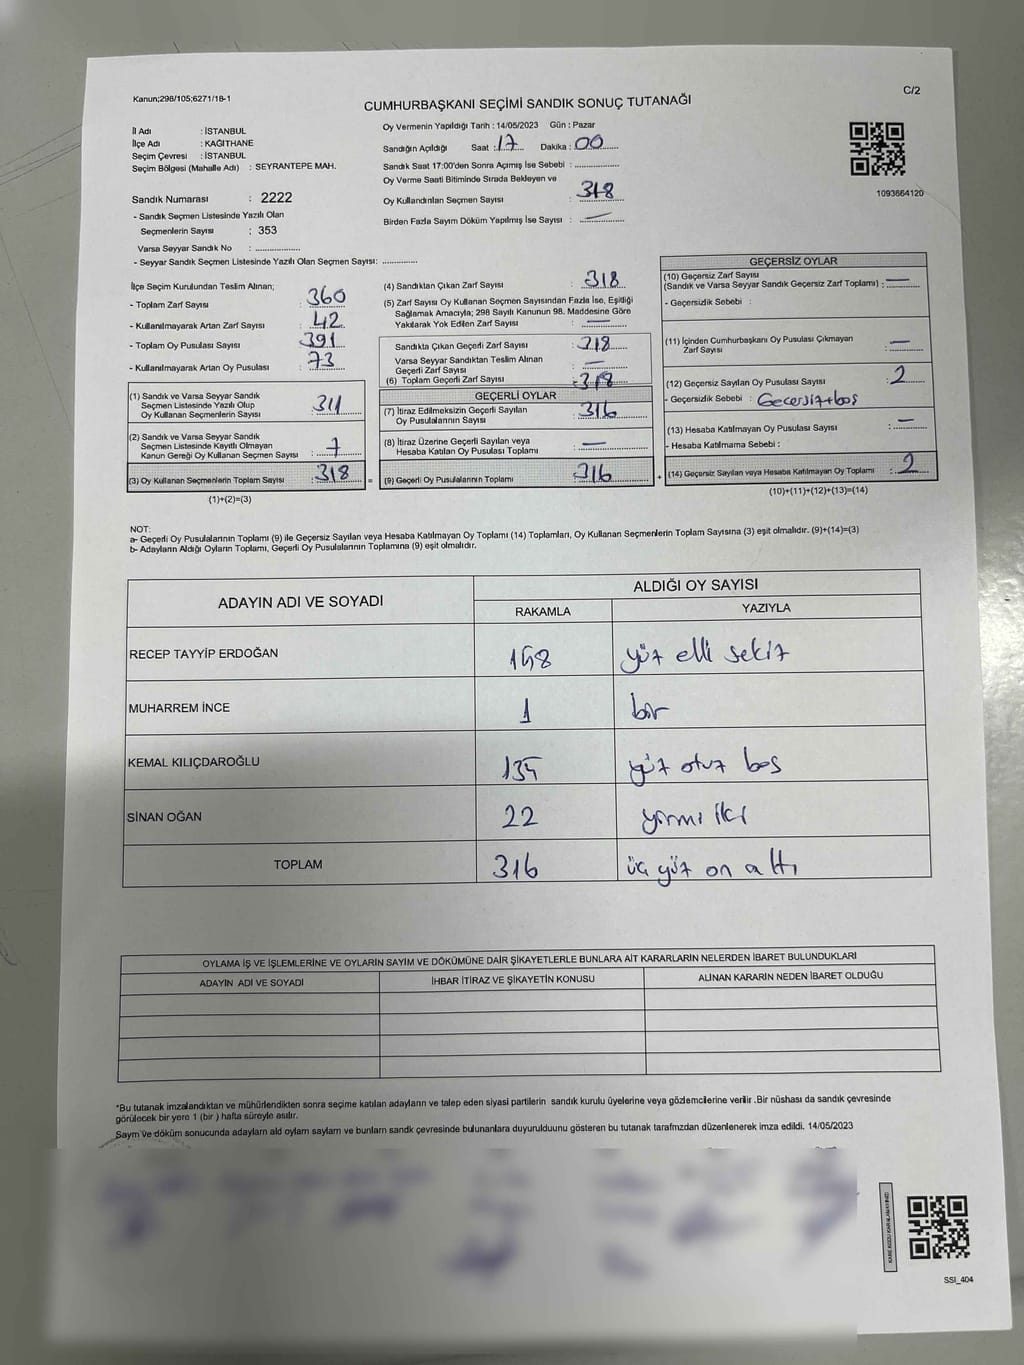 Kanun;298/105;6271/18-1
C/2
CUMHURBAŞKANI SEÇİMİ SANDIK SONUÇ TUTANAĞI
İl Adı : İSTANBUL
İlçe Adı : KAĞITHANE
Seçim Çevresi : İSTANBUL
Seçim Bölgesi (Mahalle Adı) : SEYRANTEPE MAH.
Oy Vermenin Yapıldığı Tarih : 14/05/2023 Gün : Pazar
Sandığın Açıldığı Saat : 17 Dakika : 00
Sandık Saat 17:00'den Sonra Açımış İse Sebebi :
Oy Verme Saati Bitiminde Sırada Bekleyen ve
Oy Kullandırılan Seçmen Sayısı : 318
Birden Fazla Sayım Döküm Yapılmış İse Sayısı : —
1093664120
Sandık Numarası : 2222
- Sandık Seçmen Listesinde Yazılı Olan
Seçmenlerin Sayısı : 353
Varsa Seyyar Sandık No :
- Seyyar Sandık Seçmen Listesinde Yazılı Olan Seçmen Sayısı:
İlçe Seçim Kurulundan Teslim Alınan;
- Toplam Zarf Sayısı : 360
- Kullanılmayarak Artan Zarf Sayısı : 42
- Toplam Oy Pusulası Sayısı : 391
- Kullanılmayarak Artan Oy Pusulası : 73
(1) Sandık ve Varsa Seyyar Sandık
Seçmen Listesinde Yazılı Olup
Oy Kullanan Seçmenlerin Sayısı : 311
(2) Sandık ve Varsa Seyyar Sandık
Seçmen Listesinde Kayıtlı Olmayan
Kanun Gereği Oy Kullanan Seçmen Sayısı : 7
(3) Oy Kullanan Seçmenlerin Toplam Sayısı : 318
(1)+(2)=(3)
(4) Sandıktan Çıkan Zarf Sayısı : 318
(5) Zarf Sayısı Oy Kullanan Seçmen Sayısından Fazla İse, Eşitliği
Sağlamak Amacıyla; 298 Sayılı Kanunun 98. Maddesine Göre
Yakılarak Yok Edilen Zarf Sayısı : —
Sandıkta Çıkan Geçerli Zarf Sayısı : 318
Varsa Seyyar Sandıktan Teslim Alınan
Geçerli Zarf Sayısı : —
(6) Toplam Geçerli Zarf Sayısı : 318
GEÇERLİ OYLAR
(7) İtiraz Edilmeksizin Geçerli Sayılan
Oy Pusulasının Sayısı : 316
(8) İtiraz Üzerine Geçerli Sayılan veya
Hesaba Katılan Oy Pusulası Toplamı : —
= (9) Geçerli Oy Pusulalarının Toplamı : 316
GEÇERSİZ OYLAR
(10) Geçersiz Zarf Sayısı
(Sandık ve Varsa Seyyar Sandık Geçersiz Zarf Toplamı) : —
- Geçersizlik Sebebi :
(11) İçinden Cumhurbaşkanı Oy Pusulası Çıkmayan
Zarf Sayısı : —
(12) Geçersiz Sayılan Oy Pusulası Sayısı : 2
- Geçersizlik Sebebi : Geçersiz+boş
(13) Hesaba Katılmayan Oy Pusulası Sayısı : —
- Hesaba Katılmama Sebebi :
+ (14) Geçersiz Sayılan veya Hesaba Katılmayan Oy Toplamı : 2
(10)+(11)+(12)+(13)=(14)
NOT:
a- Geçerli Oy Pusulalarının Toplamı (9) ile Geçersiz Sayılan veya Hesaba Katılmayan Oy Toplamı (14) Toplamları, Oy Kullanan Seçmenlerin Toplam Sayısına (3) eşit olmalıdır. (9)+(14)=(3)
b- Adayların Aldığı Oyların Toplamı, Geçerli Oy Pusulalarının Toplamına (9) eşit olmalıdır.
ADAYIN ADI VE SOYADI ALDIĞI OY SAYISI
RAKAMLA YAZIYLA
RECEP TAYYİP ERDOĞAN 158 yüz elli sekiz
MUHARREM İNCE 1 bir
KEMAL KILIÇDAROĞLU 135 yüz otuz beş
SİNAN OĞAN 22 yirmi iki
TOPLAM 316 üç yüz on altı
OYLAMA İŞ VE İŞLEMLERİNE VE OYLARIN SAYIM VE DÖKÜMÜNE DAİR ŞİKAYETLERLE BUNLARA AİT KARARLARIN NELERDEN İBARET BULUNDUKLARI
ADAYIN ADI VE SOYADI İHBAR İTİRAZ VE ŞİKAYETİN KONUSU ALINAN KARARIN NEDEN İBARET OLDUĞU
*Bu tutanak imzalandıktan ve mühürlendikten sonra seçime katılan adayların ve talep eden siyasi partilerin sandık kurulu üyelerine veya gözlemcilerine verilir .Bir nüshası da sandık çevresinde
görülecek bir yere 1 (bir ) hafta süreyle asılır.
Sayım ve döküm sonucunda adayların ald oyların sayları ve bunların sandk çevresinde bulunanlara duyurulduunu gösteren bu tutanak tarafmzdan düzenlenerek imza edildi. 14/05/2023
SSI_404